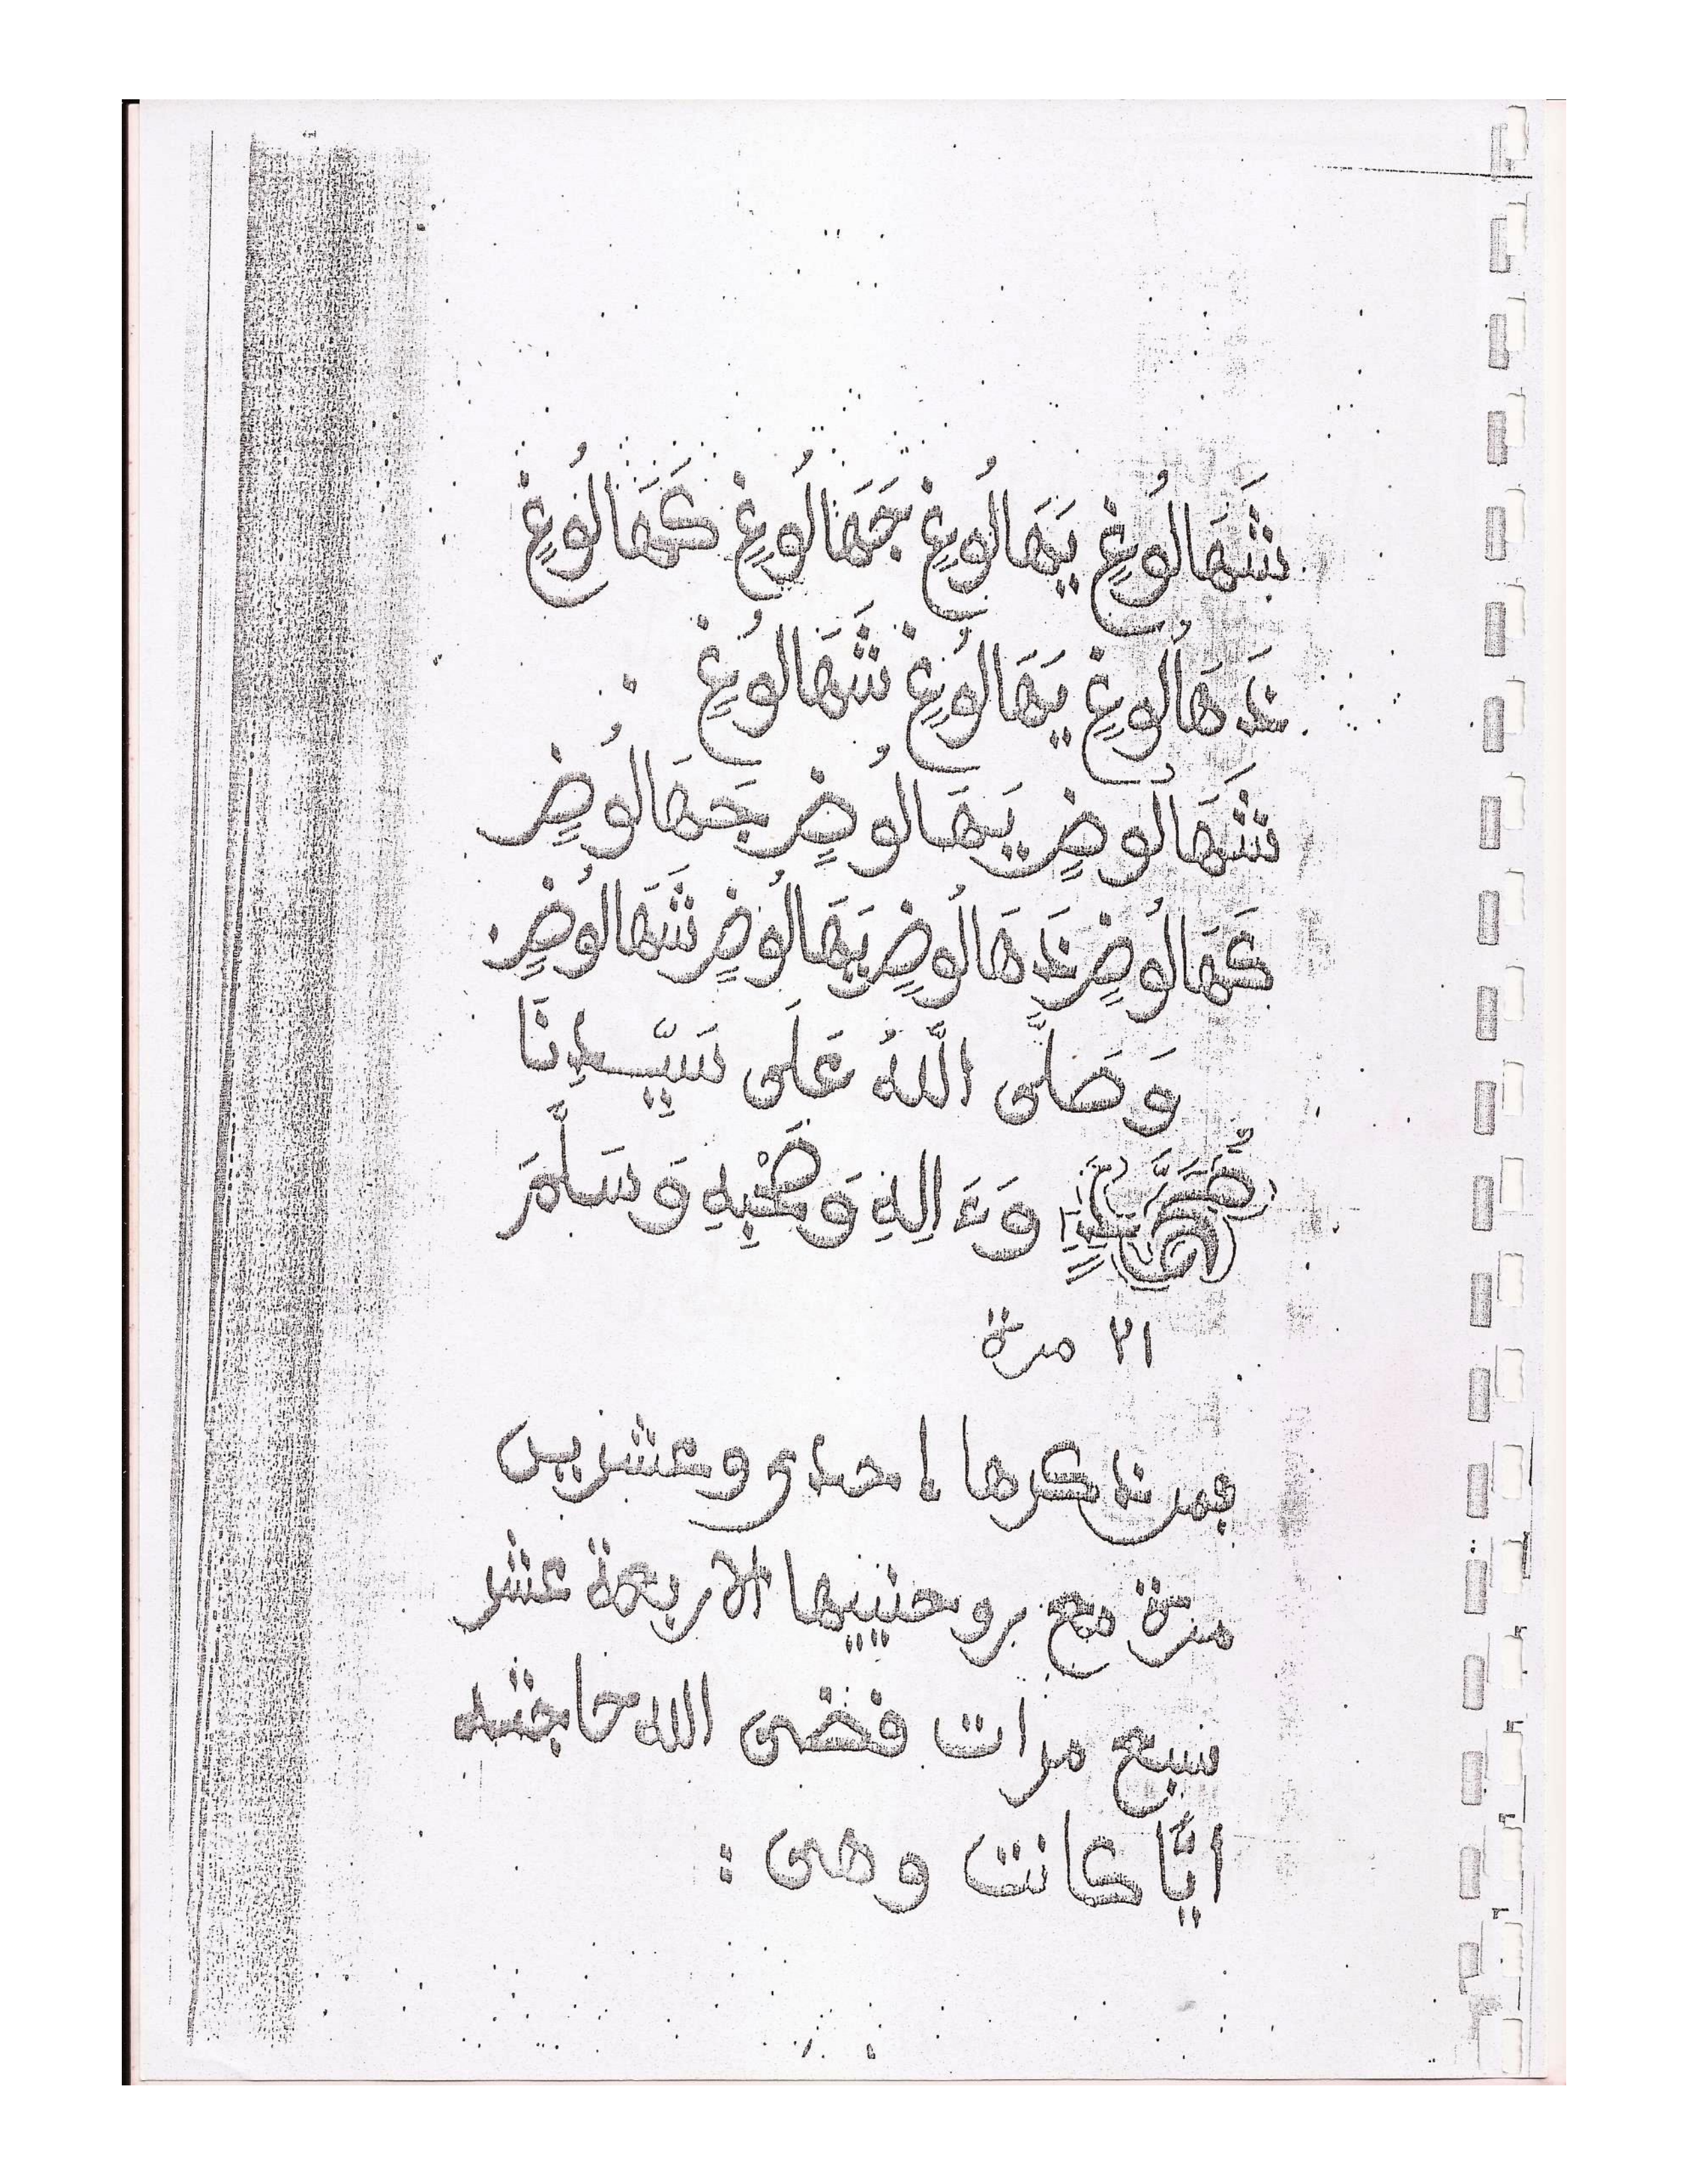 بشَهَالُوغٍ يَهَالُوغٍ جَهَالُوغٍ كَهَالُوغٍ
نَدهَالُوغٍ يَهَالُوغٍ شَهَالُوغٍ
شَهَالُوضٍ يَهَالُوضٍ جَهَالُوضٍ
كَهَالُوضٍ نَدهَالُوضٍ يَهَالُوضٍ شَهَالُوضٍ.
وَصَلَّى اللَّهُ عَلَى سَيِّدِنَا
وَءَالِهِ وَصَحْبِهِ وَسَلَّمَ
٢١ مرة
فمن ذكرها إحدى وعشرين
مرة مع بروحنييها الاربعة عشر
سبع مرات فضى الله حاجته
ايَّا كانت وهى :